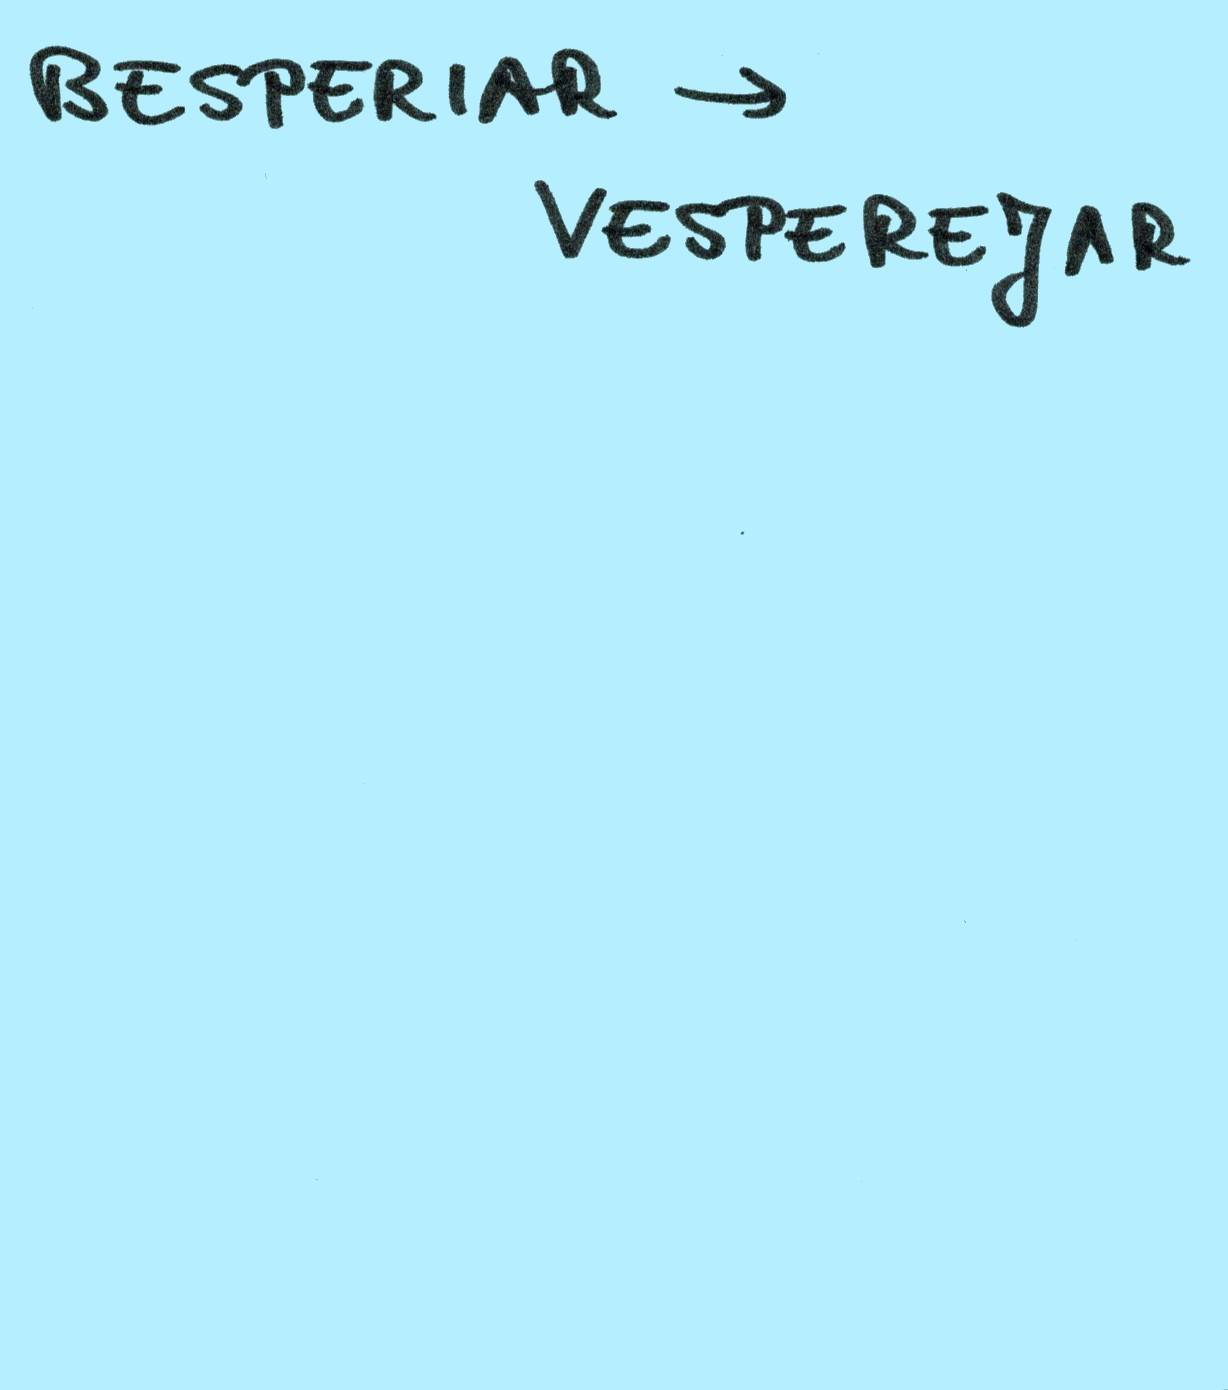 BESPERIAR →
VESPEREJAR